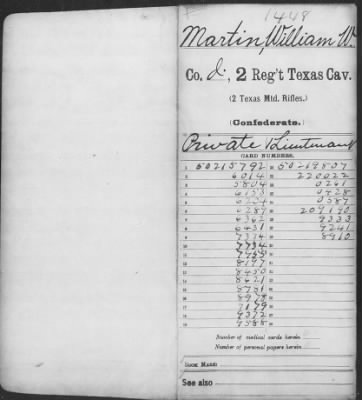 1448
Martin, William W.
Co. d, 2 Reg't Texas Cav.
(2 Texas Mtd. Rifles.)
(Confederate.)
Private | Lieutenant
CARD NUMBERS.
1 50215792 50219807
2 6014 220022
3 5804 0261
4 0428
5 0587
6 6287 209190
7 6362 9333
8 6431 9241
9 7374 8910
10 7734
11
12 8197
13 8450
14 8621
15 8751
16 8978
17 7179
18 9372
19 9588
Number of medical cards herein
Number of personal papers herein
BOOK MARK:
See also